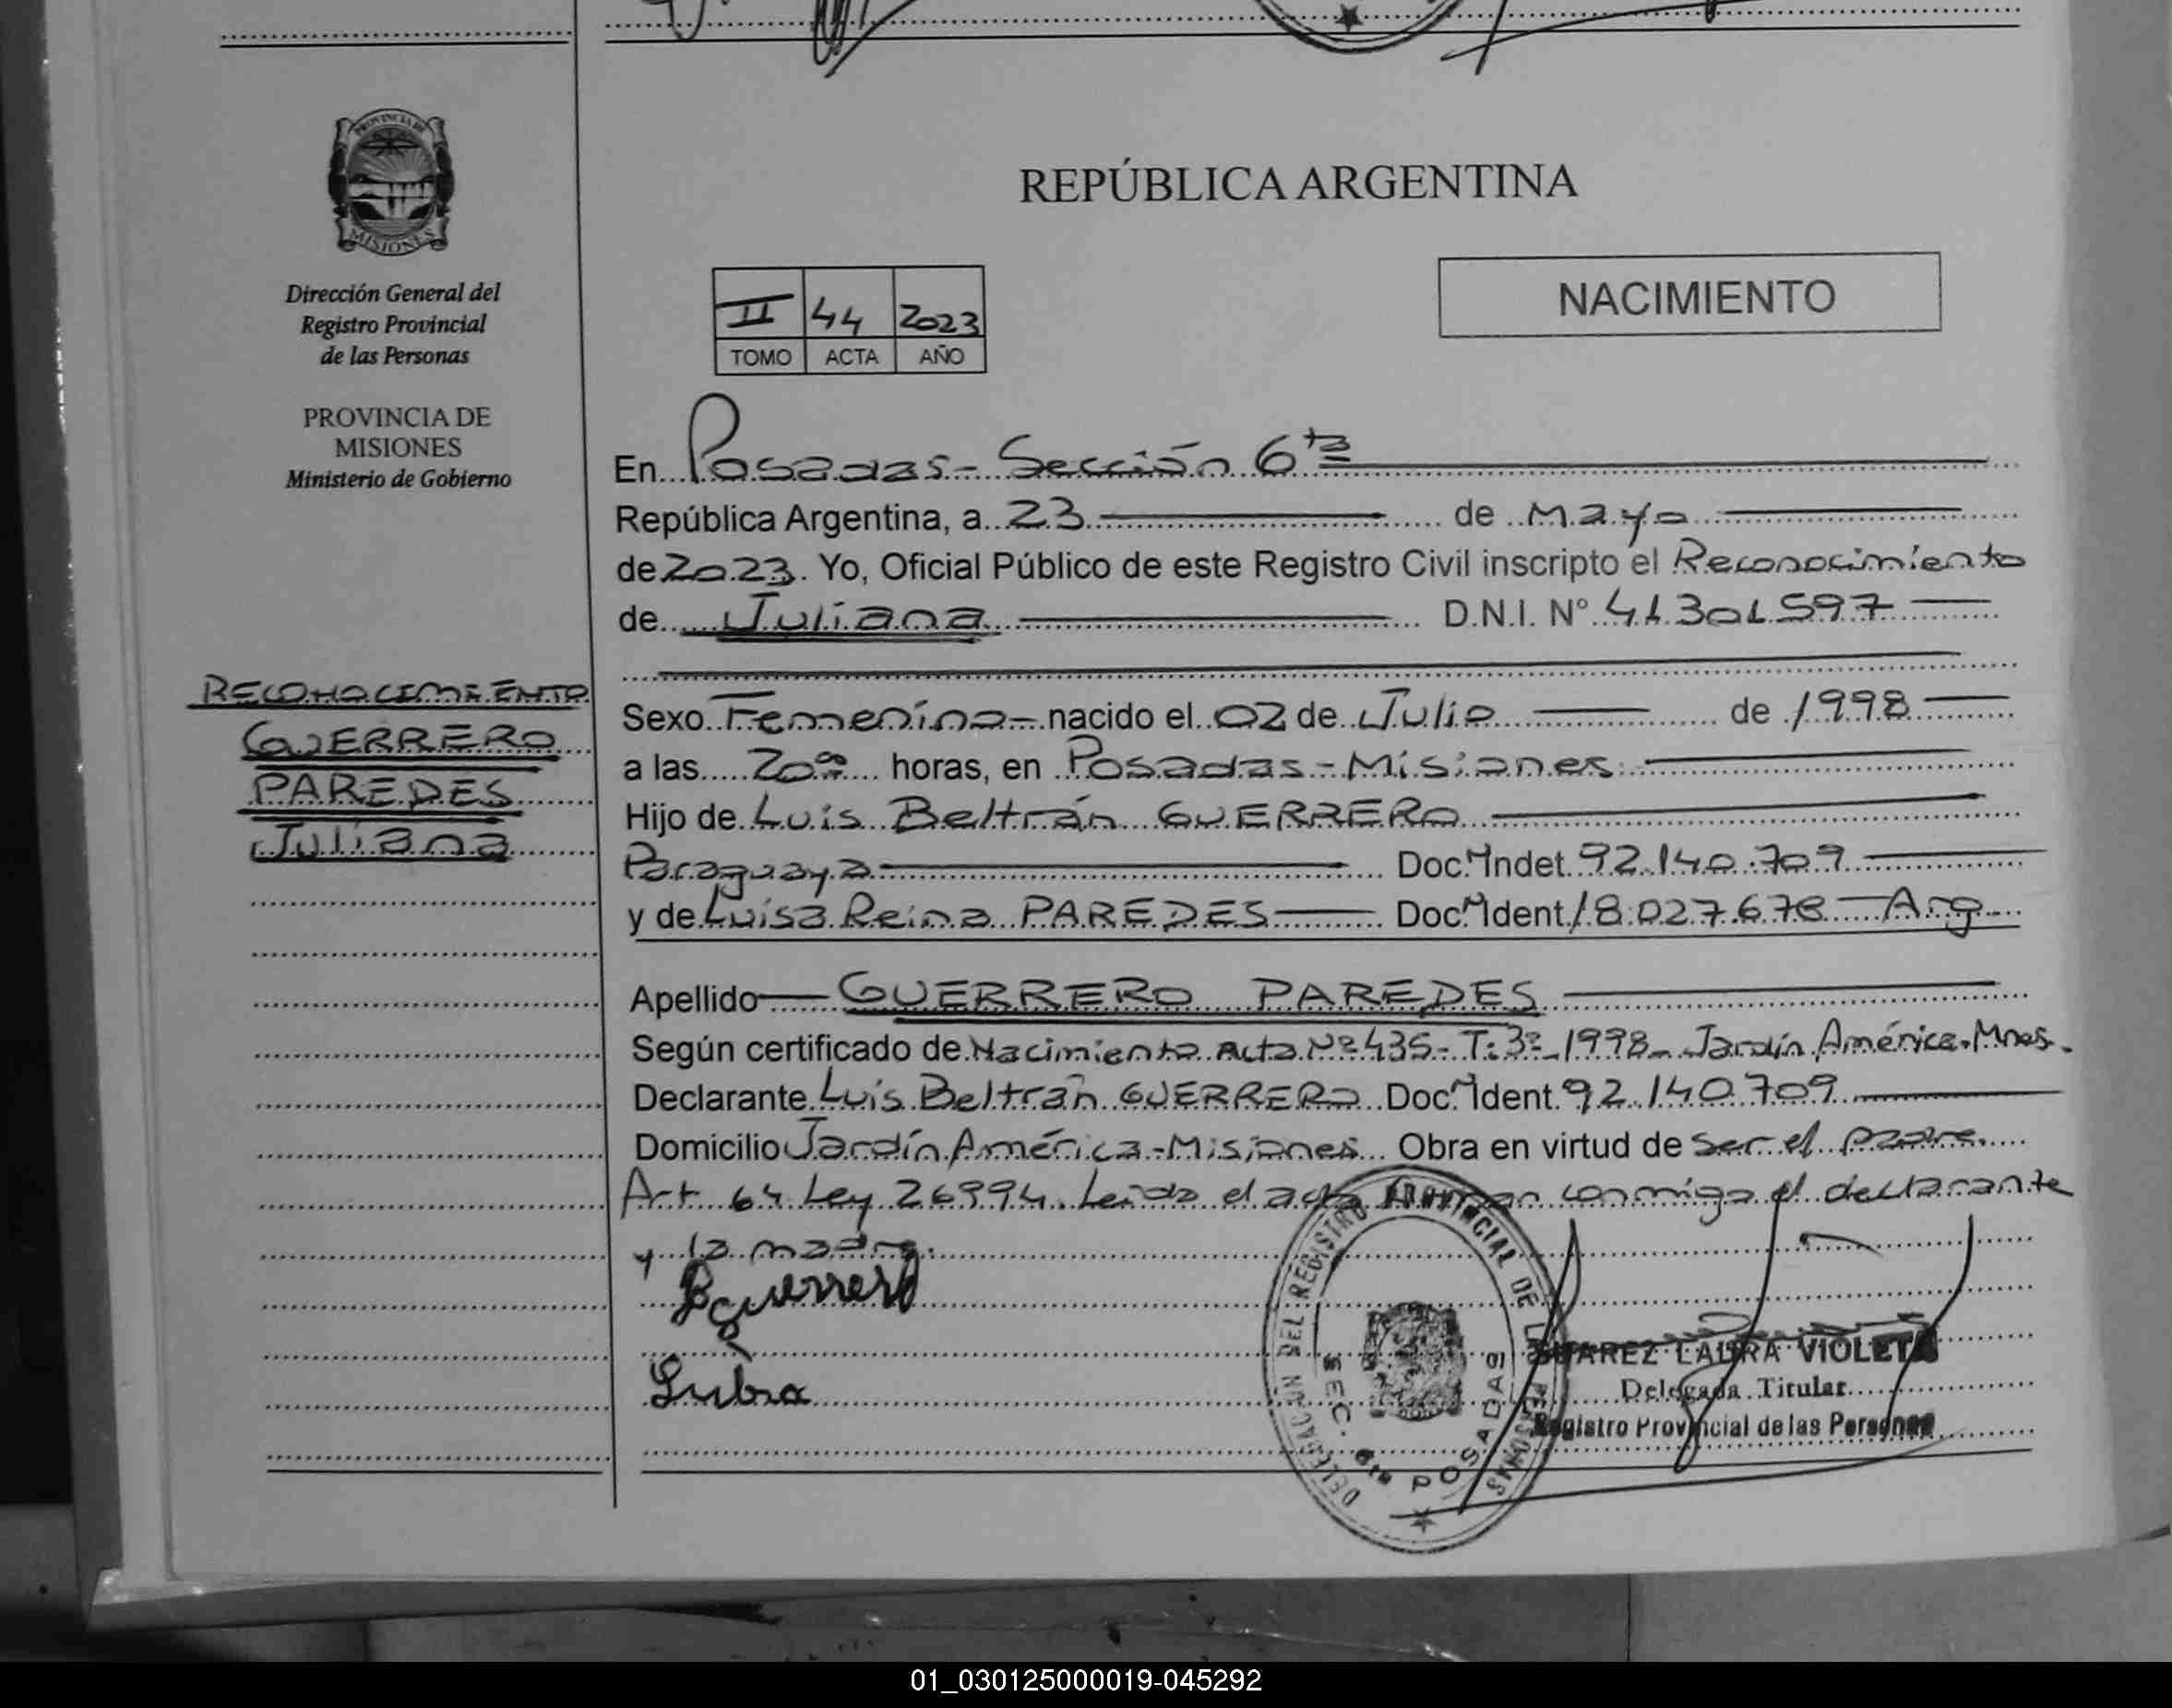 PROVINCIA DE
MISIONES
Dirección General del
Registro Provincial
de las Personas
PROVINCIA DE
MISIONES
Ministerio de Gobierno
RECONOCIMIENTO
GUERRERO
PAREDES
Juliana
REPÚBLICA ARGENTINA
II 44 2023
TOMO ACTA AÑO
NACIMIENTO
En Posadas - Sección 6ta
República Argentina, a 23 de Mayo
de 2023. Yo, Oficial Público de este Registro Civil inscripto el Reconocimiento
de Juliana D.N.I. N° 41.301.597
Sexo Femenino nacido el 02 de Julio de 1998
a las 20:00 horas, en Posadas - Misiones
Hijo de Luis Beltrán GUERRERO
Paraguaya Doc. Indet. 92.140.709
y de Luisa Reina PAREDES Doc. Ident. 18.027.678 Arg.
Apellido GUERRERO PAREDES
Según certificado de Nacimiento Acta Nº 435 - T: 3º - 1998 - Jardín América. Mnes.
Declarante Luis Beltrán GUERRERO Doc. Ident. 92.140.709
Domicilio Jardín América - Misiones Obra en virtud de ser el padre.
Art. 64 Ley 26994. Leída el acta firman conmigo el declarante
y la madre.
DELEGACION DEL REGISTRO PROVINCIAL DE LAS PERSONAS
SEC. 6ta POSADAS
SUAREZ LAURA VIOLETA
Delegada Titular
Registro Provincial de las Personas
01_030125000019-045292